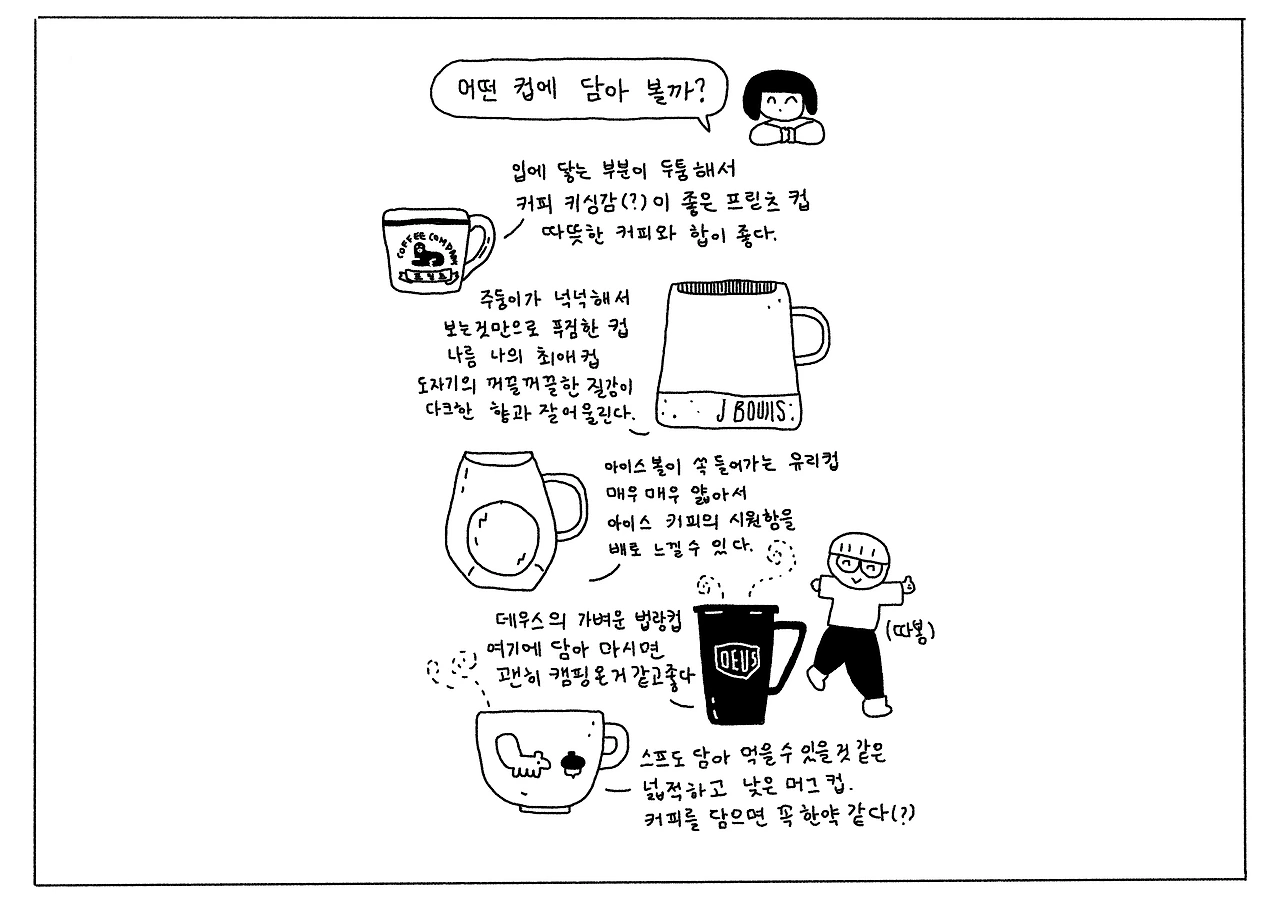 어떤 컵에 담아 볼까?
입에 닿는 부분이 두툼해서
커피 키싱감(?)이 좋은 프릳츠 컵
따뜻한 커피와 합이 좋다.
COFFEE COMPANY
프릳츠
주둥이가 넉넉해서
보는것만으로 푸짐한 컵
나름 나의 최애컵
도자기의 꺼끌꺼끌한 질감이
다크한 향과 잘어울린다.
J BOUIIS
아이스볼이 쏙 들어가는 유리컵
매우매우 얇아서
아이스 커피의 시원함을
배로 느낄수 있다.
데우스의 가벼운 법랑컵
여기에 담아 마시면
괜히 캠핑온거같고좋다
DEUS
(따봉)
스프도 담아 먹을수있을것같은
넓적하고 낮은 머그컵.
커피를 담으면 꼭한약 같다(?)